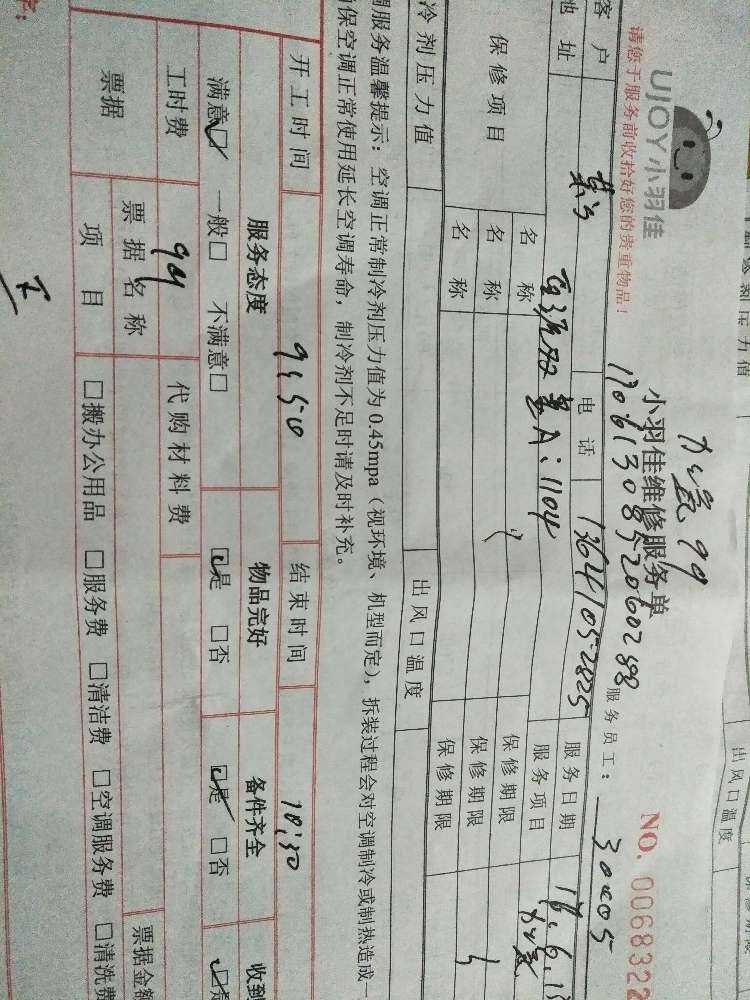 UJOY小羽佳
小羽佳维修服务单
NO. 0068322
99
17061308520602898
请您于服务前收拾好您的贵重物品！
服务员工：30005
客户
电话
13641052825
服务日期
17.6.1
地址
A:1104
服务项目
保修项目
名称
保修期限
名称
保修期限
名称
保修期限
冷剂压力值
出风口温度
调服务温馨提示：空调正常制冷剂压力值为0.45mpa（视环境、机型而定），拆装过程会对空调制冷或制热造成一
保空调正常使用延长空调寿命，制冷剂不足时请及时补充。
开工时间
9:50
结束时间
10:50
服务态度
物品完好
备件齐全
收到
满意☑
一般□
不满意□
☑是
□否
☑是
□否
工时费
99
代购材料费
票据
票据名称
票据金额
项目
□搬办公用品
□服务费
□清洁费
□空调服务费
□清洗费
出风口温度